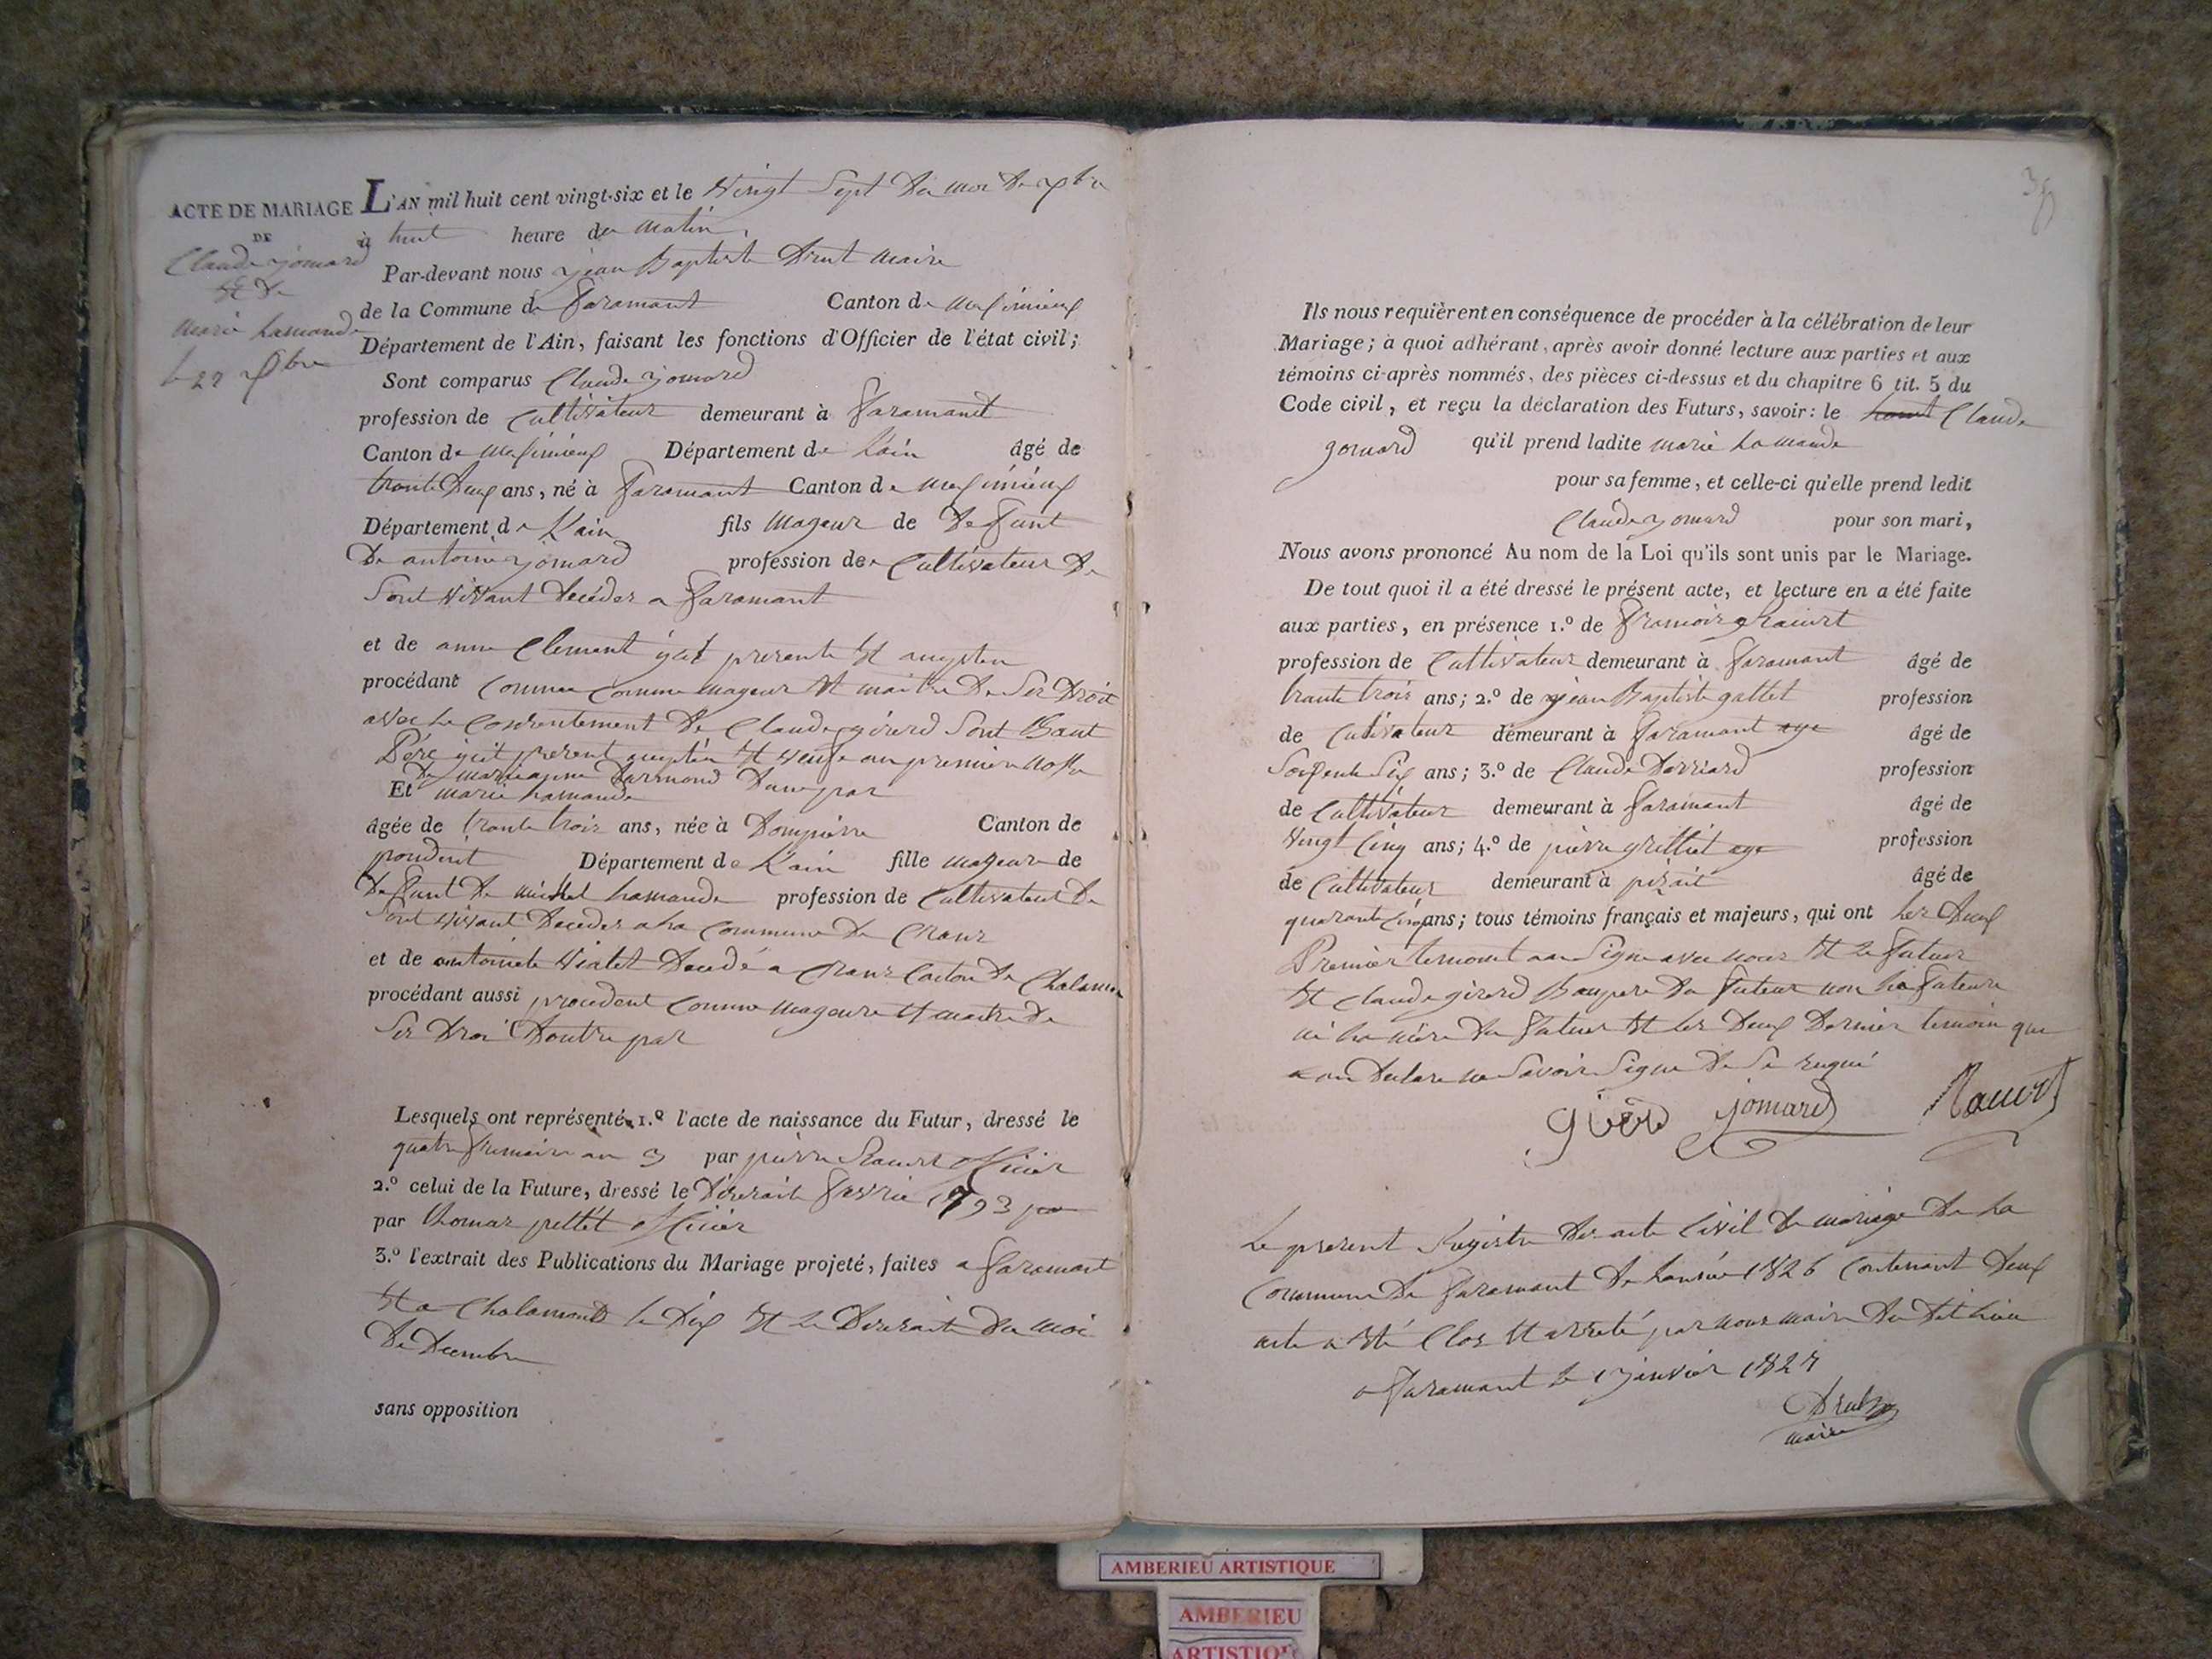 ACTE DE MARIAGE
DE
Claude jomard
et de
marie Lamande
le 27 Xbre
L'AN mil huit cent vingt-six et le vingt Sept du moi de Xbre
à huit heure du matin,
Par-devant nous jean Baptiste Drut maire
de la Commune de faramant Canton de meximieux
Département de l'Ain, faisant les fonctions d'Officier de l'état civil;
Sont comparus Claude jomard
profession de Cultivateur demeurant à faramant
Canton de meximieux Département de L'ain âgé de
trante deux ans, né à faramant Canton de meximieux
Département de L'ain fils mageur de defunt
De antoine jomard profession de Cultivateur De
Sont vivant decéder a faramant
et de anne Clement
procédant comme comme mageur et maitre De Ses Droit
avec le Consentement De Claude girerd Sont Baut
Père
Et marie Lamande D'une par
âgée de trante trois ans, née à Dompierre Canton de
pondint Département de L'ain fille mageure de
defunt De michel Lamande profession de Cultivateur De
Sont vivant Decéder a La Commune De Crans
et de antoinete vialet Decedé a Crans Canton De Chalamon
procédant aussi procedent Comme mageure et maitre De
Ses Droi D'autre par
Lesquels ont représenté 1.º l'acte de naissance du Futur, dressé le
quatre frimaire an 3 par pierre officier
2.º celui de la Future, dressé le Disesait 1793
par thomas pettet officier
3.º l'extrait des Publications du Mariage projeté, faites a faramant
et a Chalamont le Dix et le Disesait du moi
De Decembre
sans opposition
38
Ils nous requièrent en conséquence de procéder à la célébration de leur
Mariage; à quoi adhérant, après avoir donné lecture aux parties et aux
témoins ci-après nommés, des pièces ci-dessus et du chapitre 6 tit. 5 du
Code civil, et reçu la déclaration des Futurs, savoir: le Claude
jomard qu'il prend ladite marie Lamande
pour sa femme, et celle-ci qu'elle prend ledit
Claude jomard pour son mari,
Nous avons prononcé Au nom de la Loi qu'ils sont unis par le Mariage.
De tout quoi il a été dressé le présent acte, et lecture en a été faite
aux parties, en présence 1.º de
profession de Cultivateur demeurant à faramant âgé de
trante trois ans; 2.º de jean Baptiste gallet profession
de Cultivateur demeurant à faramant age âgé de
Soixente Six ans; 3.º de Claude Derriard profession
de Cultivateur demeurant à faramant âgé de
vingt Cinq ans; 4.º de pierre grilliet age profession
de Cultivateur demeurant à âgé de
quarante Cinq ans; tous témoins français et majeurs, qui ont les Deux
Premier temoint Signe avec nous et le futeur
et Claude girerd Baupere Du futeur non La futeure
ni La mère Du futeur et les Deux Dernier temoin que
on Declare ne Savoir Signe De Se requi
girerd jomard Racurt
Le present Registre Des acte Civil De mariage De La
Commune De faramant De L'année 1826 Contenant Deux
acte a été Clos et arreté par nous maire Du Dit Lieu
a faramant le 1 janvier 1827
Drut
maire
AMBERIEU ARTISTIQUE
AMBERIEU
ARTISTIQUE